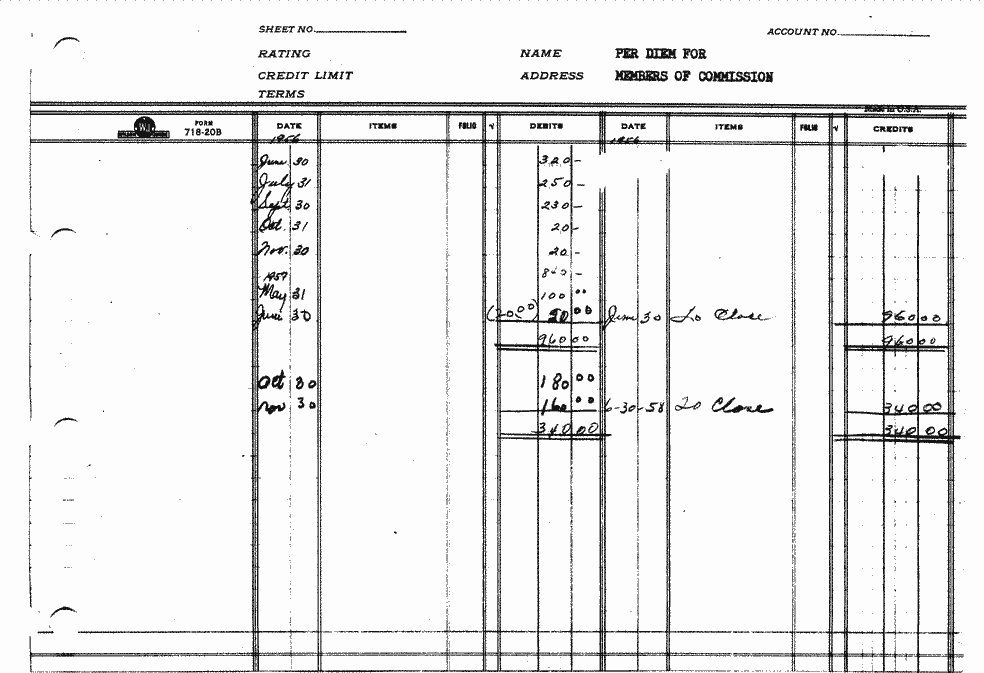 SHEET NO. ACCOUNT NO.
RATING NAME PER DIEM FOR
CREDIT LIMIT ADDRESS MEMBERS OF COMMISSION
TERMS
MADE IN U.S.A.
FORM
718-20B
DATE ITEMS FOLIO √ DEBITS DATE ITEMS FOLIO √ CREDITS
1956 1956
June 30 320-
July 31 250-
Sept 30 230-
Oct. 31 20-
Nov. 30 20-
840-
1957
May 31 100 00
June 30 (20.00) 20 00 June 30 To Close 960 00
960 00 960 00
Oct 30 180 00
Nov 30 160 00 6-30-58 To Close 340 00
340 00 340 00